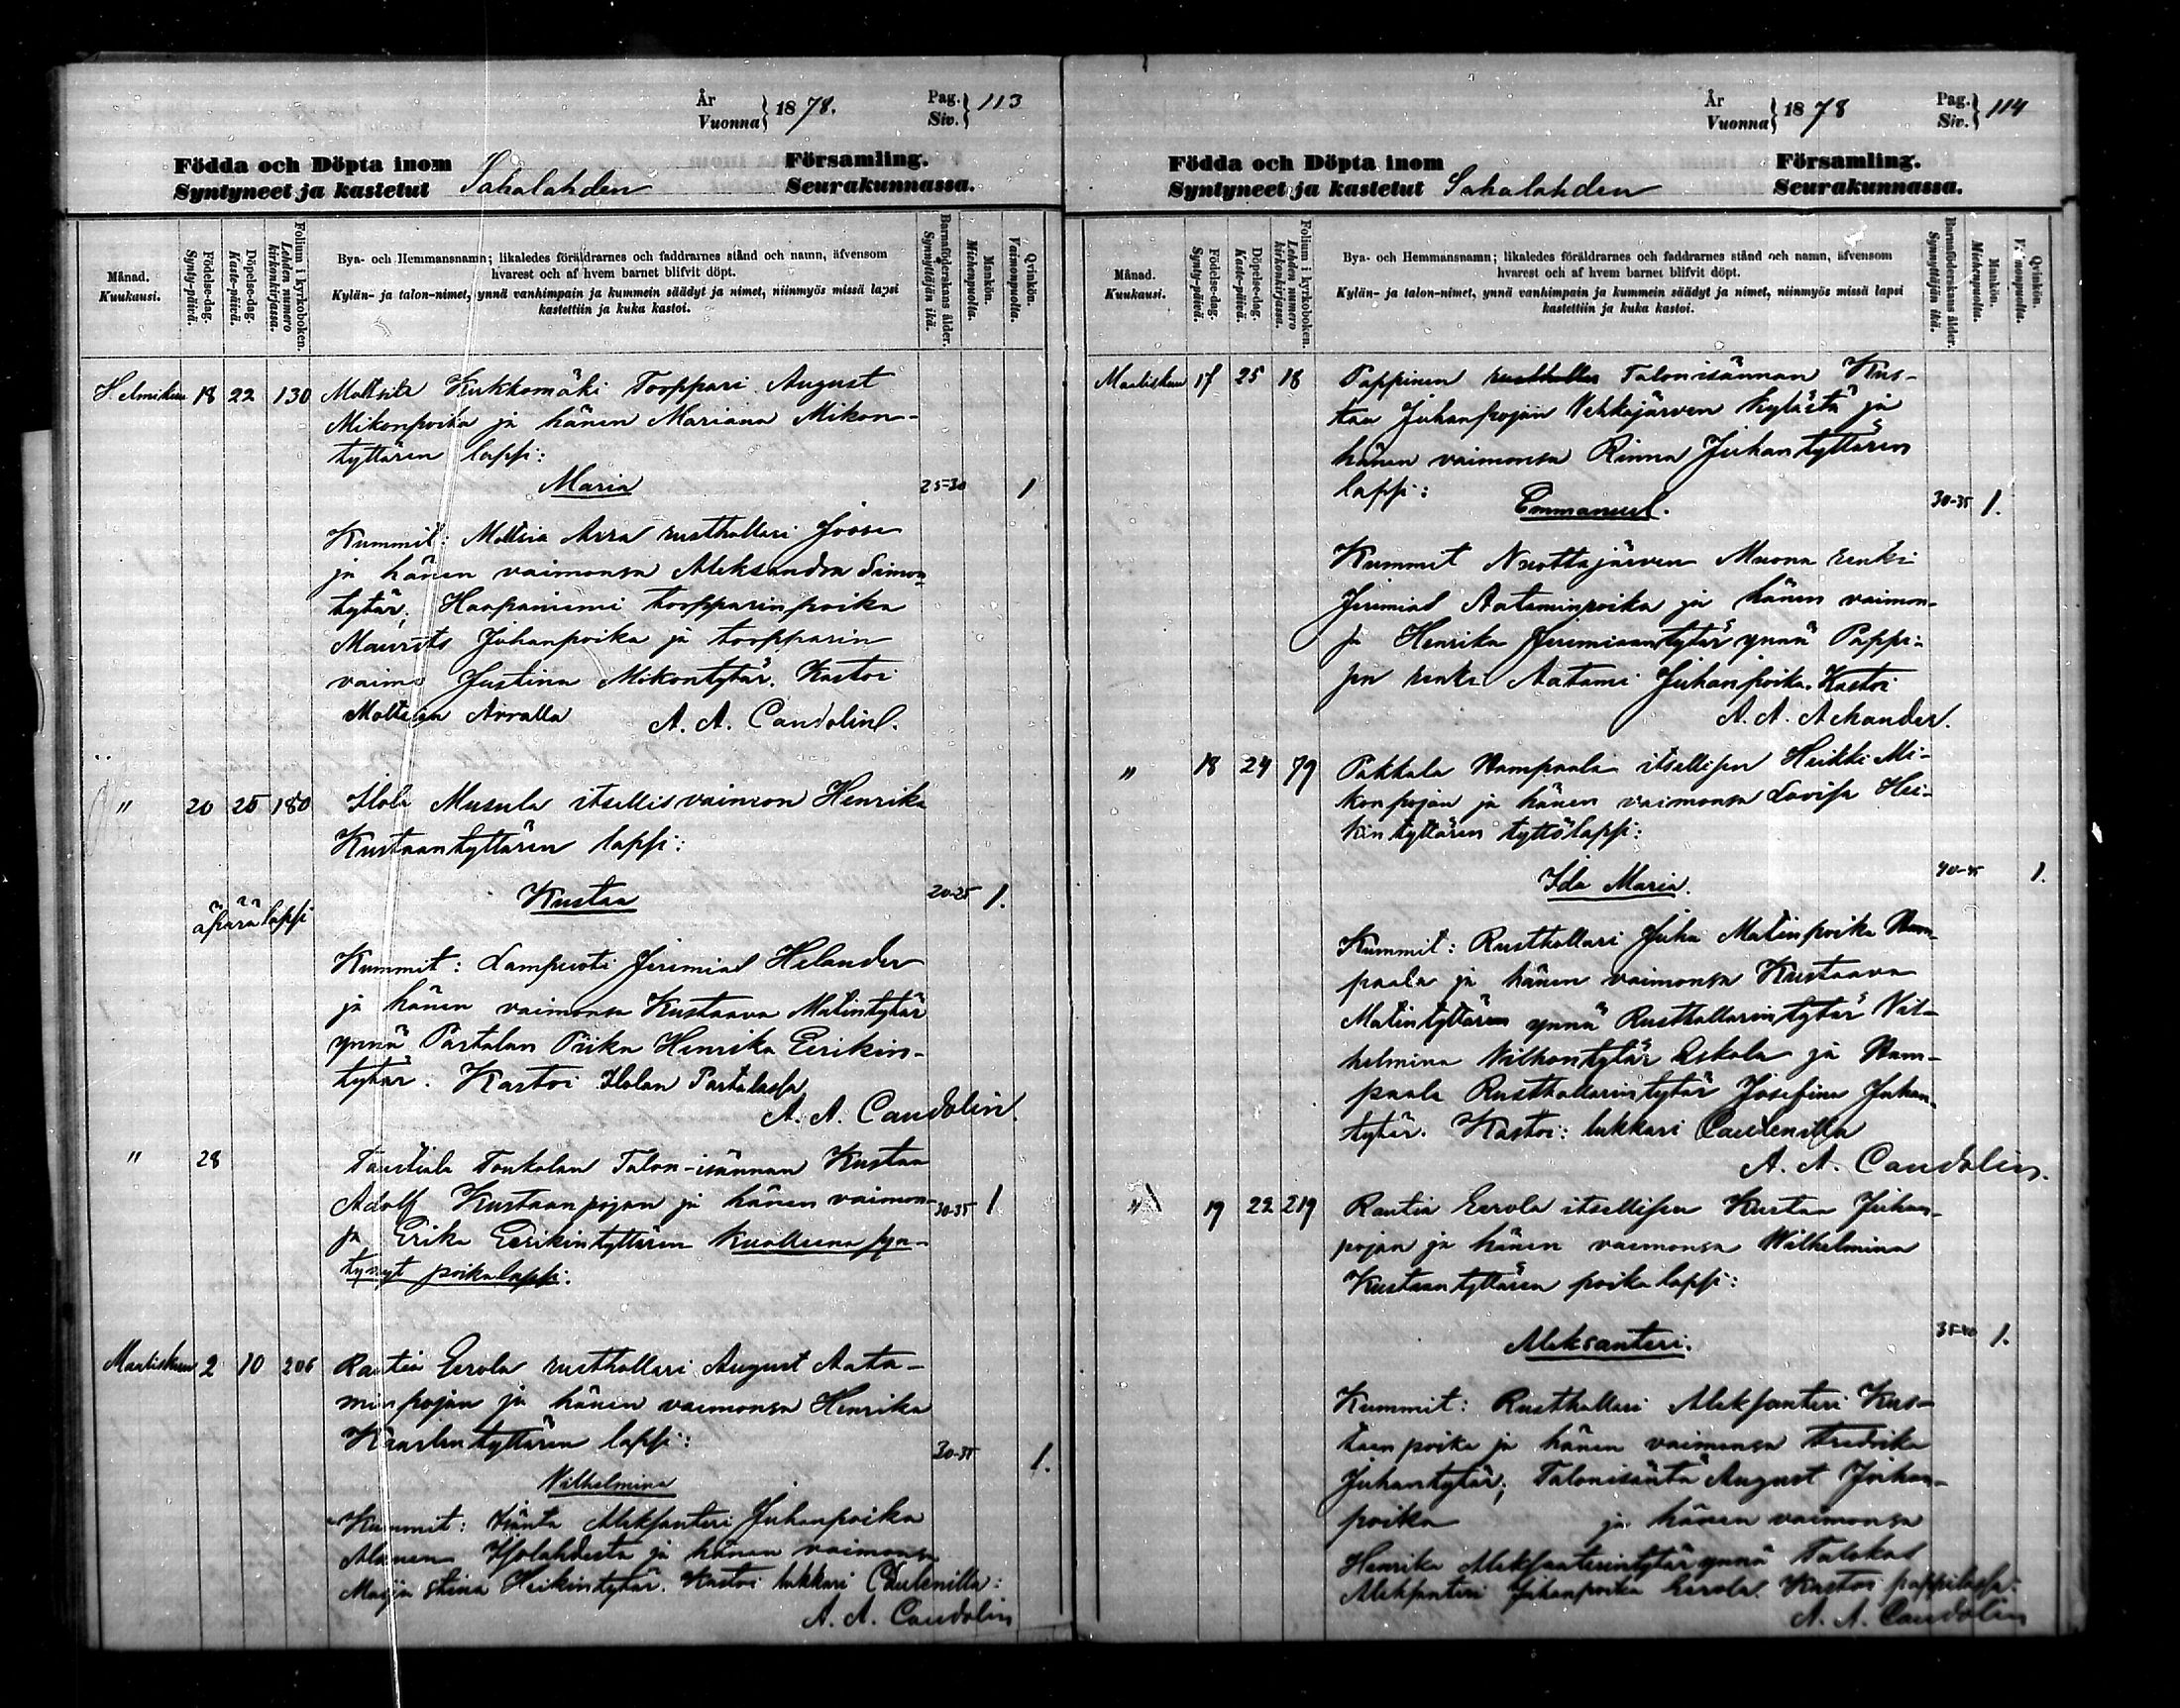 År
Vuonna } 1878. Pag.
Siv. } 113
Födda och Döpta inom Församling.
Syntyneet ja kastetut Sahalahden Seurakunnassa.
Månad.
Kuukausi.
Födelse-dag.
Synty-päivä.
Döpelse-dag.
Kaste-päivä.
Folium i kyrkoboken.
Lehden numero
kirkonkirjassa.
Bya- och Hemmansnamn; likaledes föräldrarnes och faddrarnes stånd och namn, äfvensom
hvarest och af hvem barnet blifvit döpt.
Kylän- ja talon-nimet, ynnä vanhimpain ja kummein säädyt ja nimet, niinmyös missä lapsi
kastettiin ja kuka kastoi.
Barnaföderskans ålder.
Synnyttäjän ikä.
Mankön.
Miehenpuolia.
Qvinkön.
Vaimonpuolia.
Helmikuu 18 22 130 Kukkomäki Torppari August
Mikonpoika ja hänen Mariana Mikon-
tyttären lapsi:
Maria 25-30 1
Kummit: Arra rusthollari Joose
ja hänen vaimonsa Aleksandra Simon-
tytär, Haapaniemi torpparinpoika
Maurits Juhanpoika ja torpparin
vaimo Justina Mikontytär. Kastoi
Arralla A. A. Candolin.
" 20 25 180 Ilola Musula itsellisvaimon Henrika
Kustaantyttären lapsi:
Kustaa 20-25 1.
äpärä lapsi
Kummit: Lampuoti Jeremias Helander
ja hänen vaimonsa Kustaava Matintytär
ynnä Partalan Piika Henrika Eerikin-
tytär. Kastoi Ilolan Partalassa
A. A. Candolin.
" 28 Taustiala Toukolan Talon-isännän Kustaa
Adolf Kustaanpojan ja hänen vaimon- 30-35 1
sa Erika Eerikintyttären kuolleena syn-
tynyt poikalapsi.
Maaliskuu 2 10 206 Rautia Eerola rusthollari August Aata-
minpojan ja hänen vaimonsa Henrika
Kaarlentyttären lapsi: 30-35 1.
Vilhelmina
Kummit: Isäntä Aleksanteri Juhanpoika
Alanen Isolahdesta ja hänen vaimonsa
Maija Stina Heikintytär. Kastoi lukkari
A. A. Candolin
År
Vuonna } 1878 Pag.
Siv. } 114
Födda och Döpta inom Församling.
Syntyneet ja kastetut Sahalahden Seurakunnassa.
Månad.
Kuukausi.
Födelse-dag.
Synty-päivä.
Döpelse-dag.
Kaste-päivä.
Folium i kyrkoboken.
Lehden numero
kirkonkirjassa.
Bya- och Hemmansnamn; likaledes föräldrarnes och faddrarnes stånd och namn, äfvensom
hvarest och af hvem barnet blifvit döpt.
Kylän- ja talon-nimet, ynnä vanhimpain ja kummein säädyt ja nimet, niinmyös missä lapsi
kastettiin ja kuka kastoi.
Barnaföderskans ålder.
Synnyttäjän ikä.
Mankön.
Miehenpuolia.
Qvinkön.
Vaimonpuolia.
Maaliskuu 17 25 18 Pappinen Talonisännän Kus-
taa Juhanpojan Vehkajärven kylästä ja
hänen vaimonsa Rinna Juhantyttären
lapsi:
Emmanuel. 30-35 1.
Kummit Nuottajärven Muona renki
Jeremias Aataminpoika ja hänen vaimon-
sa Henrika Jeremiaantytär ynnä Pappi-
sen renki Aatami Juhanpoika. Kastoi
A. A. Achander.
" 18 24 79 Pakkala Wampaala itsellisen Heikki Mi-
konpojan ja hänen vaimonsa Lovisa Hei-
kintyttären tyttölapsi:
Ida Maria. 40-45 1.
Kummit: Rusthollari Juha Matinpoika Wam-
paala ja hänen vaimonsa Kustaava
Matintyttären ynnä Rusthollarintytär Vil-
helmina Vilhontytär Eskola ja Wam-
paala Rusthollarintytär Josefina Juhan-
tytär. Kastoi: lukkari
A. A. Candolin.
" 19 22 219 Rautia Eerola itsellisen Kustaa Juhan-
pojan ja hänen vaimonsa Wilhelmina
Kustaantyttären poikalapsi:
Aleksanteri. 35-40 1.
Kummit: Rusthollari Aleksanteri Kus-
taanpoika ja hänen vaimonsa Fredrika
Juhantytär; Talonisäntä August Juhan-
poika ja hänen vaimonsa
Henrika Aleksanterintytär ynnä Talokas
Aleksanteri Juhanpoika Eerola. Kastoi pappilassa.
A. A. Candolin